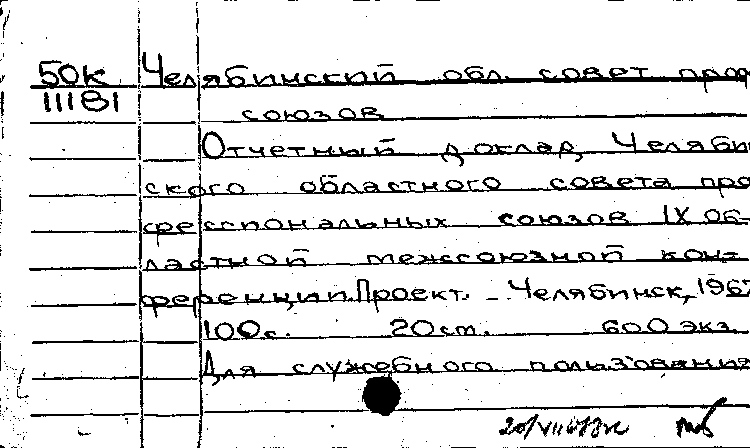 50К Челябинский обл. совет проф
11181 союзов
Отчетный доклад Челябин
ского областного совета про
фессиональных союзов IX об-
ластной межсоюзной кон-
ференции. Проект. – Челябинск, 1967
100с. 20см. 600 экз.
Для служебного пользования